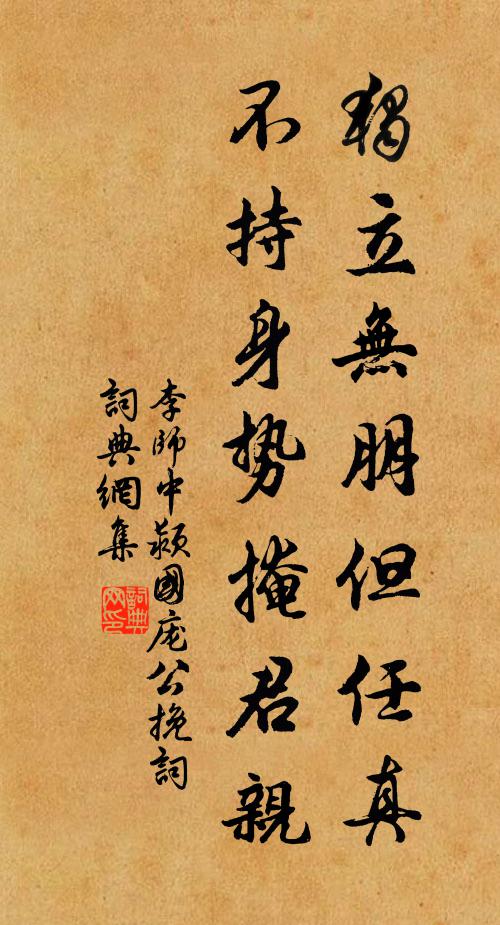 獨立無朋但任真
不持身勢掩君親
李師中潁國庞公挽詞
詞典網集
詞典網印